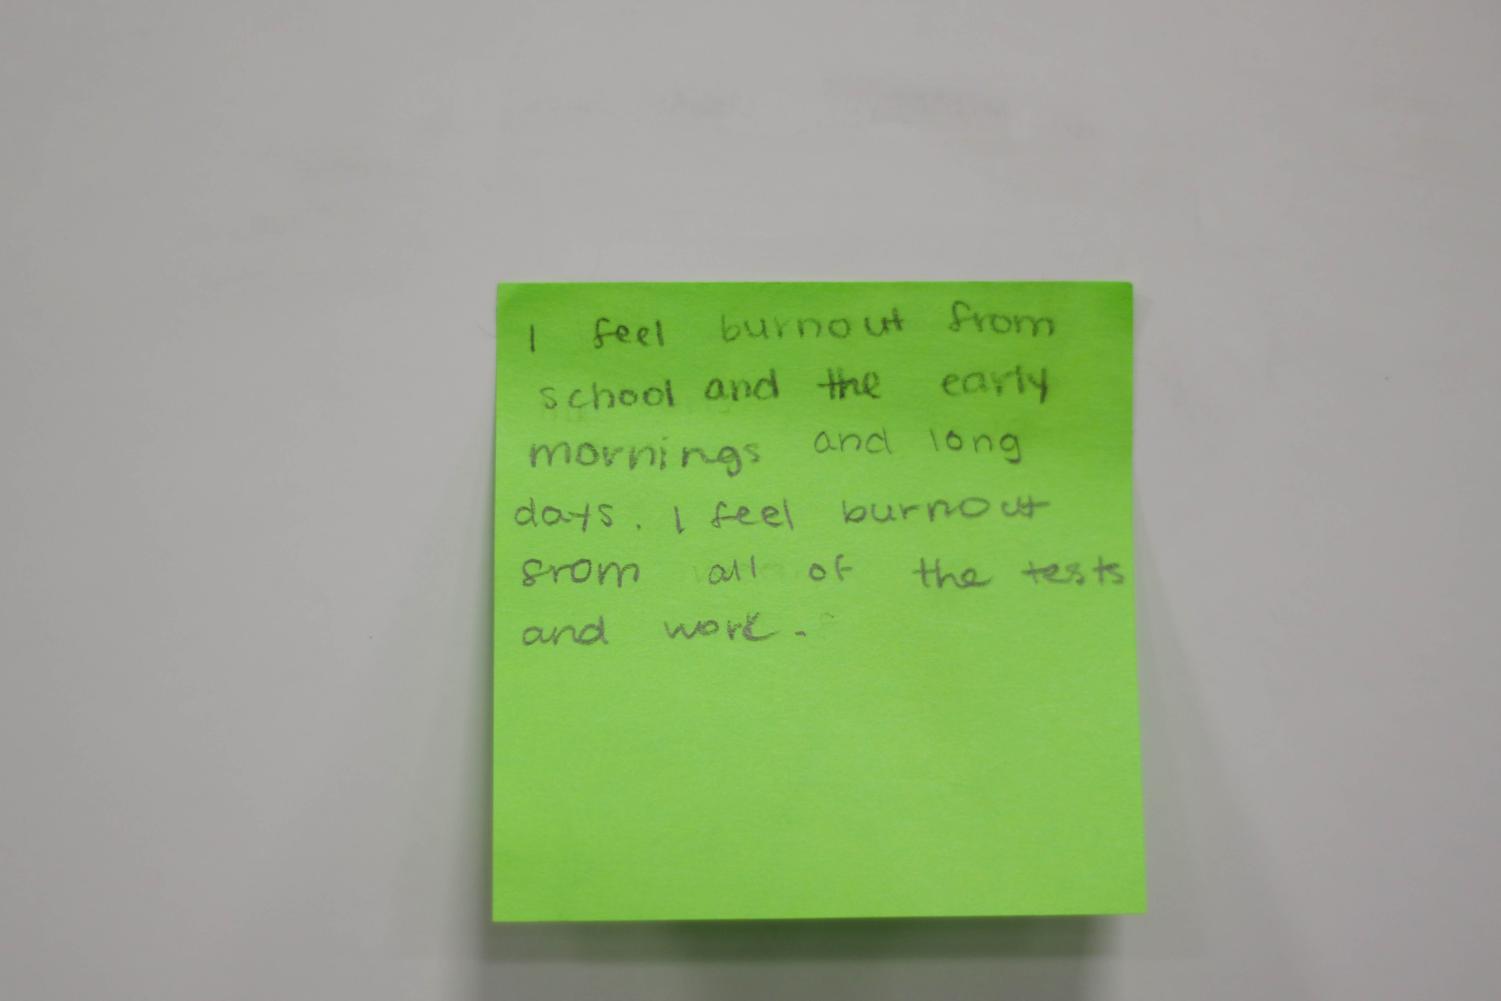 I feel burnout from
school and the early
mornings and long
days. I feel burnout
from all of the tests
and work.